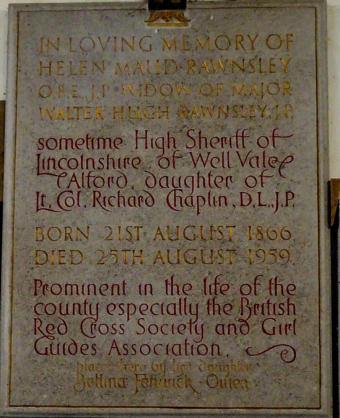 IN LOVING MEMORY OF
HELEN MAUD RAWNSLEY
O.B.E. J.P. WIDOW OF MAJOR
WALTER HUGH RAWNSLEY. J.P.
sometime High Sheriff of
Lincolnshire, of Well Vale
Alford, daughter of
Lt. Col. Richard Chaplin, D.L., J.P.
BORN 21ST AUGUST 1866
DIED 25TH AUGUST 1959.
Prominent in the life of the
county especially the British
Red Cross Society and Girl
Guides Association.
placed here by her daughter
Bettina Fenwick-Owen